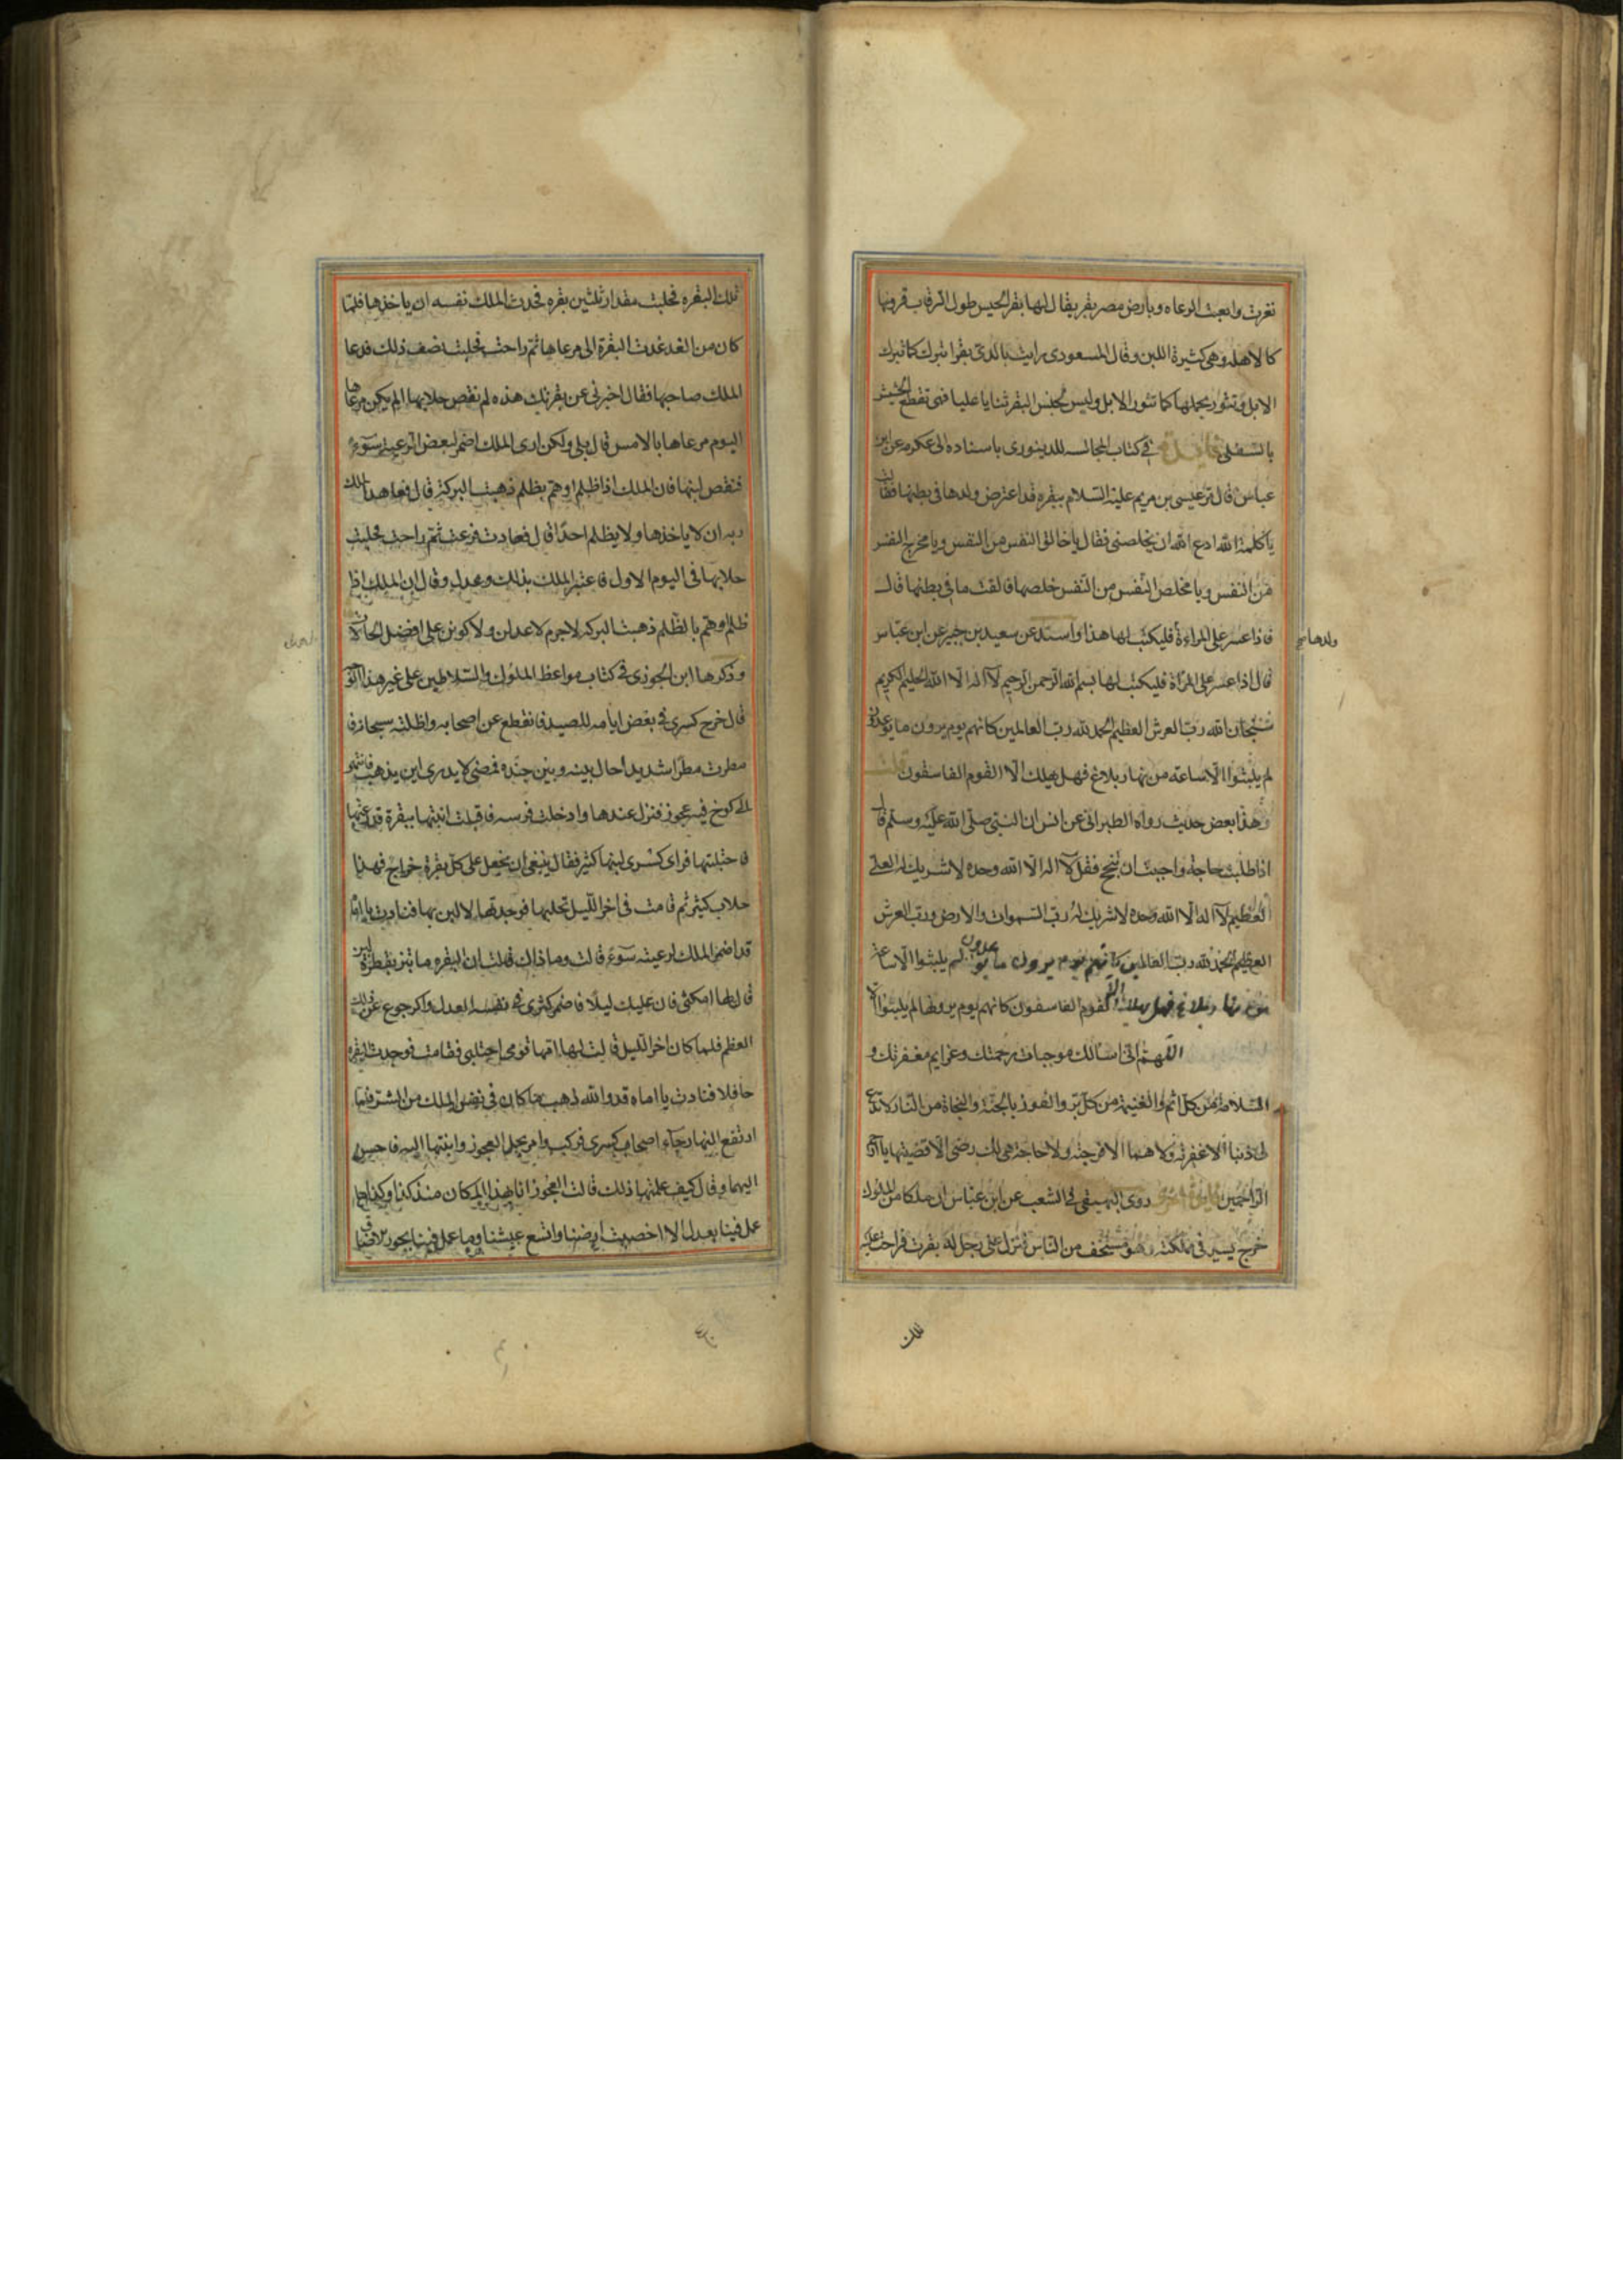 نفرت واتعبت الرعاه وبارض مصر بقر يقال لها بقر الخيس طول الرقاب قرونها
كالاهله وهي كثيرة اللبن وقال المسعودي رايت بالري بقرا تبرك كما تبرك
الابل وتثور بحملها كما تثور الابل وليس لجنس البقر ثنايا عليا فهي تقطع الحشيش
بالسفلى فايدة في كتاب المجالسه للدينوري باسناده الى عكرمه عن ابن
عباس قال مر عيسى بن مريم عليه السلام ببقره قد اعترض ولدها في بطنها فقالت
يا كلمة الله ادع الله ان يخلصني فقال يا خالق النفس من النفس ويا مخرج النفس
من النفس ويا مخلص النفس من النفس خلصها فالقت ما في بطنها قال
فاذا عسر على المراءة فليكتب لها هذا واسند عن سعيد بن جبير عن ابن عباس
ولدها
قال اذا عسر على المرأة فليكتب لها بسم الله الرحمن الرحيم لا اله الا الله الحليم الكريم
سبحان الله رب العرش العظيم الحمد لله رب العالمين كانهم يوم يرون ما يوعدون
لم يلبثوا الا ساعة من نهار بلاغ فهل يهلك الا القوم الفاسقون قلت
وهذا بعض حديث رواه الطبراني عن انس ان النبي صلى الله عليه وسلم قال
اذا طلبت حاجة واحببت ان تنجح فقل لا اله الا الله وحده لا شريك له العلي
العظيم لا اله الا الله وحده لا شريك له رب السموات والارض ورب العرش
العظيم الحمد لله رب العالمين كانهم يوم يرون ما يوعدون لم يلبثوا الا ساعة
من نهار بلاغ فهل يهلك الا القوم الفاسقون كانهم يوم يرونها لم يلبثوا الا
اللهم اني اسالك موجبات رحمتك وعزايم مغفرتك و
السلامة من كل اثم والغنيمة من كل بر والفوز بالجنة والنجاة من النار لا تدع
لي ذنبا الا غفرته ولا هما الا فرجته ولا حاجة هي لك رضى الا قضيتها يا ارحم
الراحمين روى البيهقي في الشعب عن ابن عباس ان ملكا من الملوك
خرج يسير في مملكته وهو مستخف من الناس فنزل على رجل له بقرت فراحت عليه
تلك
تلك البقره فحلبت مقدار ثلثين بقره فحدث الملك نفسه ان ياخذها فلما
كان من الغد غدت البقرة الى مرعاها ثم راحت فحلبت نصف ذلك فدعا
الملك صاحبها فقال اخبرني عن بقرتك هذه لم نقص حلابها الم يكن مرعاها
اليوم مرعاها بالامس قال بلى ولكن ارى الملك اضمر لبعض الرعيه سوء
فنقص لبنها فان الملك اذا ظلم او هم بظلم ذهبت البركة قال فعاهد الملك
ربه ان لا ياخذها ولا يظلم احدًا قال فعادت فرعت ثم راحت فحلبت
حلابها في اليوم الاول فاعتبر الملك بذلك وعدل وقال ان الملك اذا
ظلم او هم بالظلم ذهبت البركه لا جرم لاعدلن ولاكونن على افضل الحالات
وذكرها ابن الجوزي في كتاب مواعظ الملوك والسلاطين على غير هذا
قال خرج كسرى في بعض ايامه للصيد فانقطع عن اصحابه واظلته سحابة ف
مطرت مطرًا شديدا حال بينه وبين جنده فمضى لا يدري اين يذهب فانتهى
الى كوخ فيه عجوز فنزل عندها وادخلت فرسه فاقبلت ابنتها ببقرة قد رعتها
فاحتلبتها فراى كسرى لبنها كثير فقال ينبغي ان يجعل على كل بقرة خراج فهذا
حلاب كثير ثم قامت في اخر الليل تحلبها فوجدتها لا لبن بها فنادت يا اماه
قد اضمر الملك لرعيته سوءً قالت وما ذلك قالت ان البقره ما تبز بقطرة لبن
قال لها امكثي فان عليك ليلًا فاضمر كسرى في نفسه العدل والرجوع عن ذلك
العظم فلما كان اخر الليل قالت لها امها قومي احتلبي فقامت فوجدت البقره
حافلا فنادت يا اماه قد والله ذهب ما كان في نفس الملك من الشر فلما
ارتفع النهار جاء اصحاب كسرى فركب وامر بحمل العجوز وابنتها اليه فاحسن
اليهما وقال كيف علمتها ذلك قالت العجوز انا بهذا المكان منذ كذا وكذا ما
عمل فينا بعدل الا اخصبت ارضنا واتسع عيشنا وما عمل فينا بجور الا ضاق